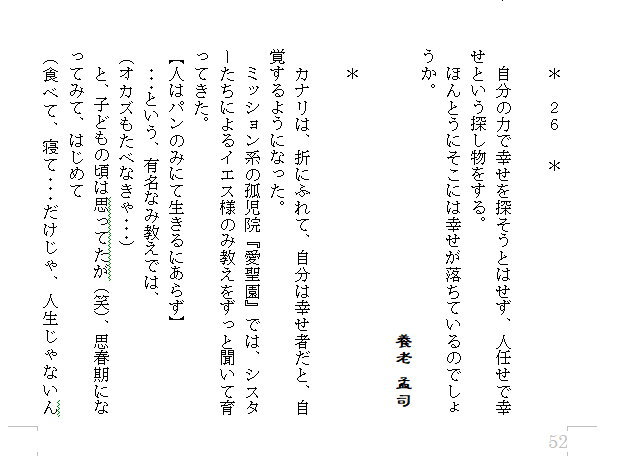 ＊　２６　＊
自分の力で幸せを探そうとはせず、人任せで幸
せという探し物をする。
ほんとうにそこには幸せが落ちているのでしょ
うか。
養老 孟司
＊
カナリは、折にふれて、自分は幸せ者だと、自
覚するようになった。
ミッション系の孤児院『愛聖園』では、シスタ
ーたちによるイエス様のみ教えをずっと聞いて育
ってきた。
【人はパンのみにて生きるにあらず】
・・・という、有名なみ教えでは、
（オカズもたべなきゃ・・・）
と、子どもの頃は思ってたが（笑）、思春期にな
ってみて、はじめて
（食べて、寝て・・・だけじゃ、人生じゃないん
52